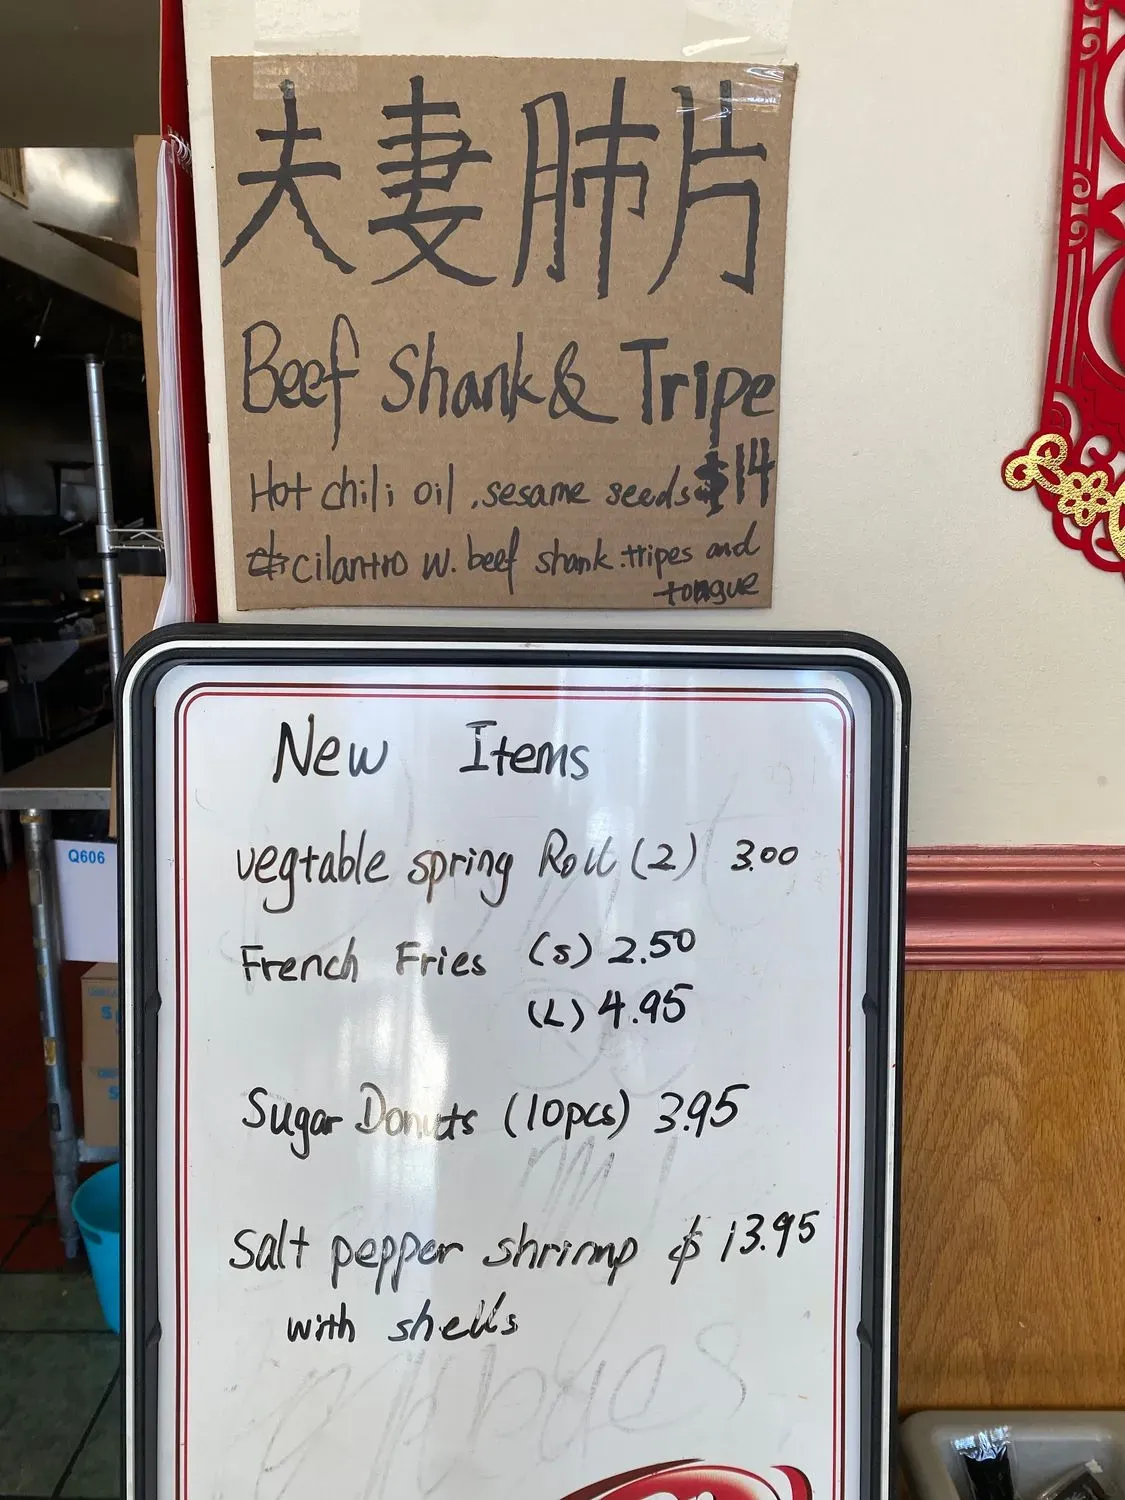 夫妻肺片
Beef Shank & Tripe
Hot chili oil, sesame seeds $14
cilantro w. beef shank. tripes and
tongue
New Items
vegtable spring Roll (2) 3.00
French Fries (S) 2.50
(L) 4.95
Sugar Donuts (10pcs) 3.95
Salt pepper shrimp $13.95
with shells
Q606